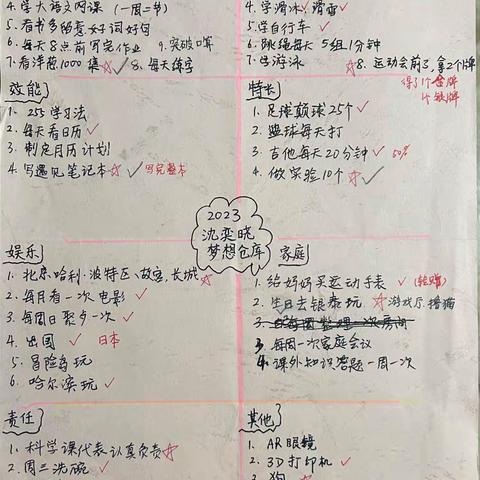 4. 学大语文网课 (一周二节)
5. 看书多随意好词好句
6. 每天8点前写完作业 9. 突破口算
7. 看洋葱1000集 8. 每天练字
效能
1. 255学习法
2. 每天看日历
3. 制定月历计划
4. 写遇见笔记本 写完整本
娱乐
1. 北京哈利·波特区、故宫、长城
2. 每月看一次电影
3. 每周日聚步一次
4. 出国 日本
5. 冒险岛玩
6. 哈尔滨玩
责任
1. 科学课代表认真负责
2. 周三洗碗
2023
沈奕晓
梦想仓库
4. 学滑冰 滑雪
5. 学自行车
6. 跳绳每天5组1分钟
7. 学游泳 8. 运动会前3、拿2个牌
得了1个金牌
1个银牌
特长
1. 足球颠球25个
2. 篮球每天打
3. 吉他每天20分钟 50%
4. 做实验10个
家庭
1. 给妈妈买运动手表 (转赠)
2. 生日去银泰玩 游戏厅、撸猫
3. 每周整理一次房间
3. 每周一次家庭会议
4. 课外知识答题一周一次
其他
1. AR眼镜
2. 3D打印机
3. 狗